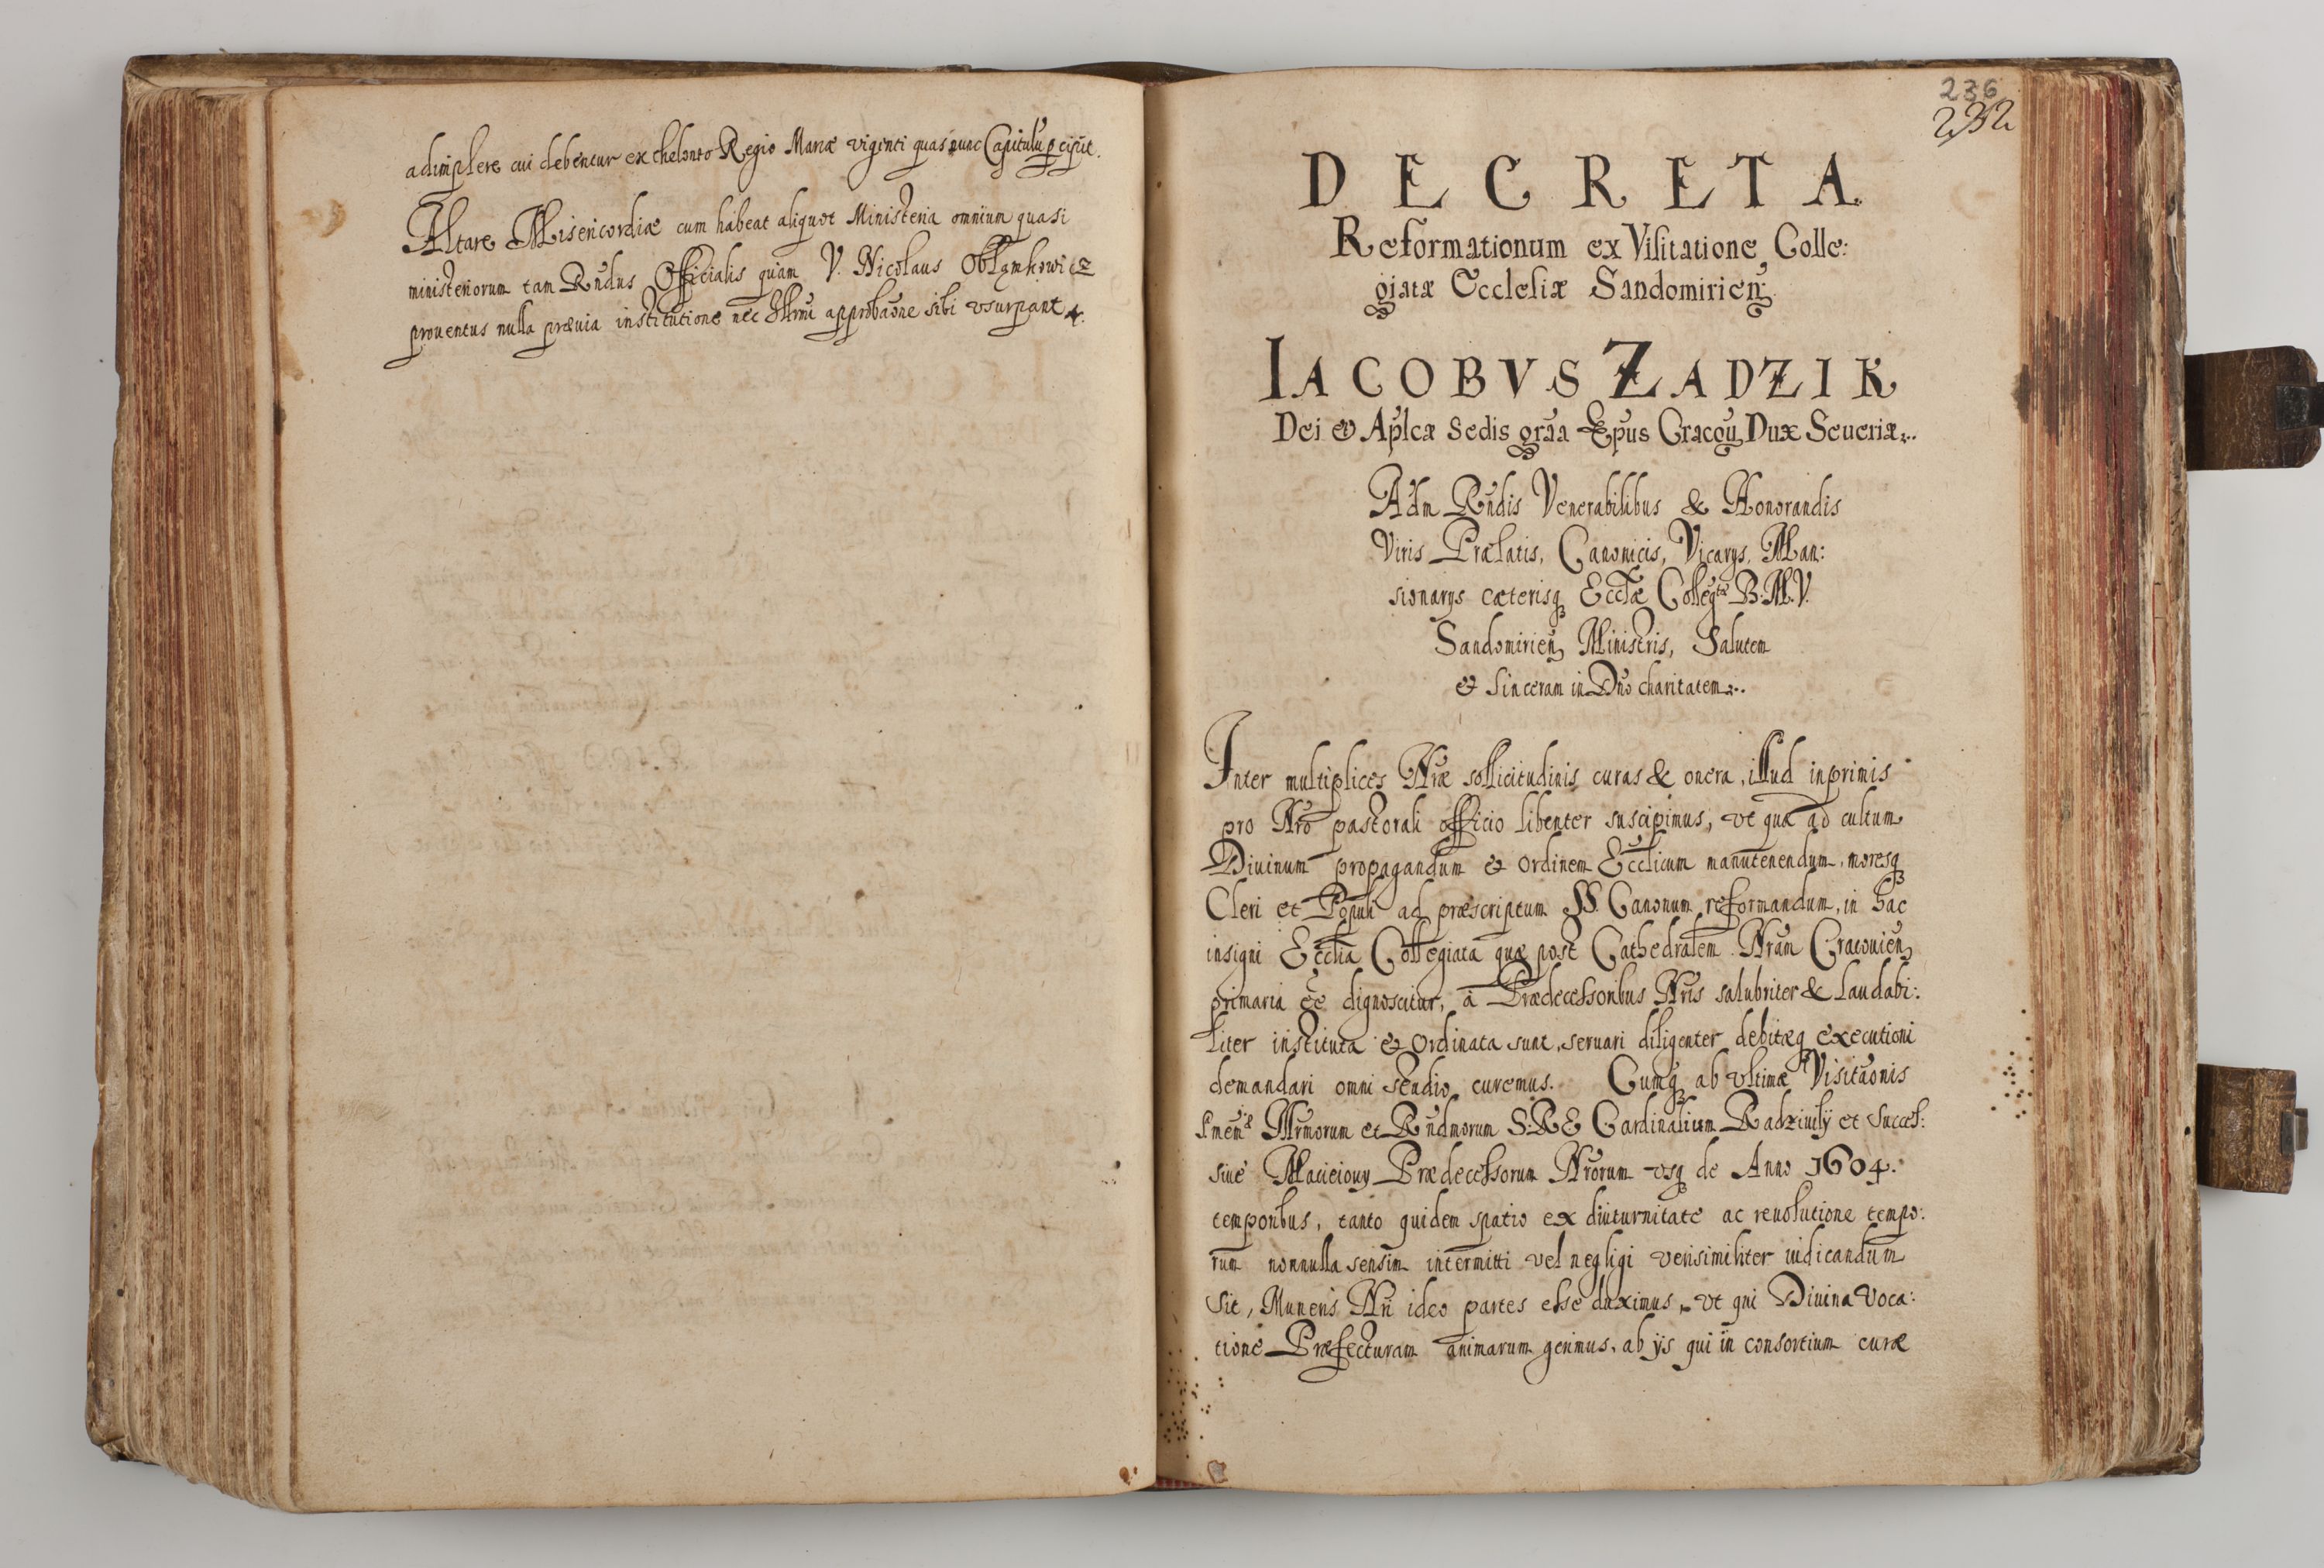 adimplere cui debentur ex theloneo Regio Marcæ viginti quas nunc Capitulũ
Altare Misericordiæ cum habeat aliquot Ministeria omnium quasi
ministeriorum tam Rñdus Officialis quàm V. Nicolaus
prouentus nulla præuia institutione nec Illrmi approbaõne sibi vsurpant
236
232
DECRETA
Reformationum ex Visitatione Colle:
giatæ Ecclesiæ Sandomirien̄
IACOBVS ZADZIK
Dei & Aplcæ Sedis grãa Epus Cracou Dux Seueriæ
Adm Rndis Venerabilibus & Honorandis
Viris Prælatis, Canonicis, Vicarys, Man:
sionarys cæterisq Ecclæ Collegtæ B. M. V.
Sandomirien̄ Ministris, Salutem
& sinceram in Dno charitatem
Inter multiplices Nræ sollicitudinis curas & onera, illud inprimis
pro Nro pastorali officio libenter suscipimus, vt quæ ad cultum
Diuinum propagandum & ordinem Ecclicum manutenendum, moresq
Cleri et Populi ad præscriptum SS. Canonum reformandum, in hac
insigni Ecclia Collegiata quæ post Cathedralem Nram Cracouien̄
primaria ee dignoscitur, à Prædecessoribus Nris salubriter & laudabi:
liter instituta & ordinata sunt, seruari diligenter debitæq executioni
demandari omni studio curemus. Cumq ab vltimæ Visitaonis
Illrmorum et Rndmorum S. R. E Cardinalium Radziuily et Succes:
siue Macieiouy Prædecessorum Nrorum vsq de Anno 1604.
temporibus, tanto quidem spatio ex diuturnitate ac reuolutione tempo:
rum nonnulla sensim intermitti vel negligi verisimiliter iudicandum
sit, Muneris Nri ideo partes esse duximus, vt qui Diuina voca:
tione Præfecturam animarum gerimus, ab ijs qui in consortium curæ